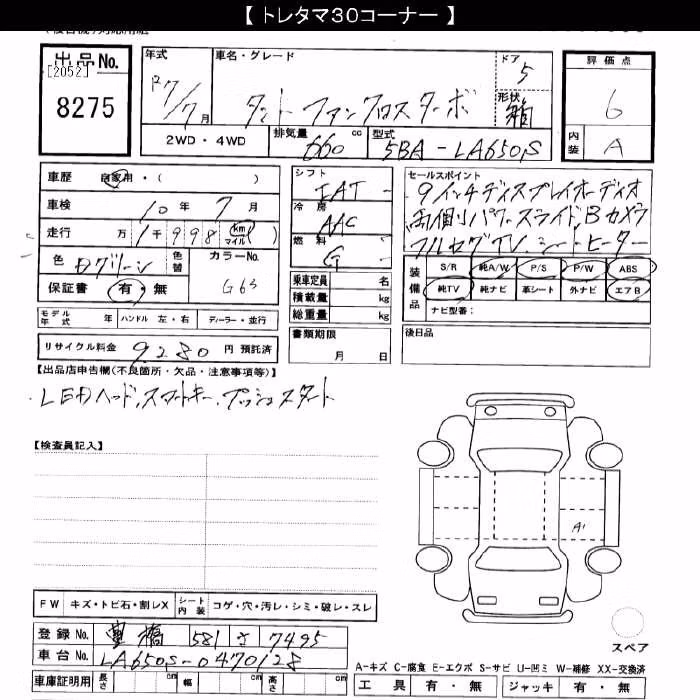 【 トレタマ30コーナー 】
出品No. [2052] 8275
年式 R7/7月
車名・グレード タント ファンクロスターボ
ドア 5
形状 箱
評価点 6
内装 A
2WD・4WD
排気量 660 cc
型式 5BA-LA650S
車歴 自家用・( )
車検 10年 7月
走行 万 1千998 (km) マイル
色 Dグリーン
色替
カラーNo. G65
保証書 有・無
モデル年式 年 ハンドル 左・右 ディーラー・並行
リサイクル料金 9280 円 預託済
シフト IAT
冷房 A/C
燃料 G
乗車定員 名
積載量 kg
総重量 kg
書類期限 月 日
セールスポイント
9インチディスプレイオーディオ
両側パワースライド Bカメラ
フルセグTV シートヒーター
装備品 S/R 純A/W P/S P/W ABS
純TV 純ナビ 革シート 外ナビ エアB
ナビ型番:
後日品
【出品店申告欄(不良箇所・欠品・注意事項等)】
・LEDヘッド、スマートキー、プッシュスタート
【検査員記入】
A1
FW キズ・トビ石・割レX シート内装 コゲ・穴・汚レ・シミ・破レ・スレ
登録No. 豊橋 581 さ 7495
車台No. LA650S-0470128
車庫証明用 長さ cm 幅 cm 高さ cm
スペア
A-キズ C-腐食 E-エクボ S-サビ U-凹ミ W-補修 XX-交換済
工具 有・無 ジャッキ 有・無